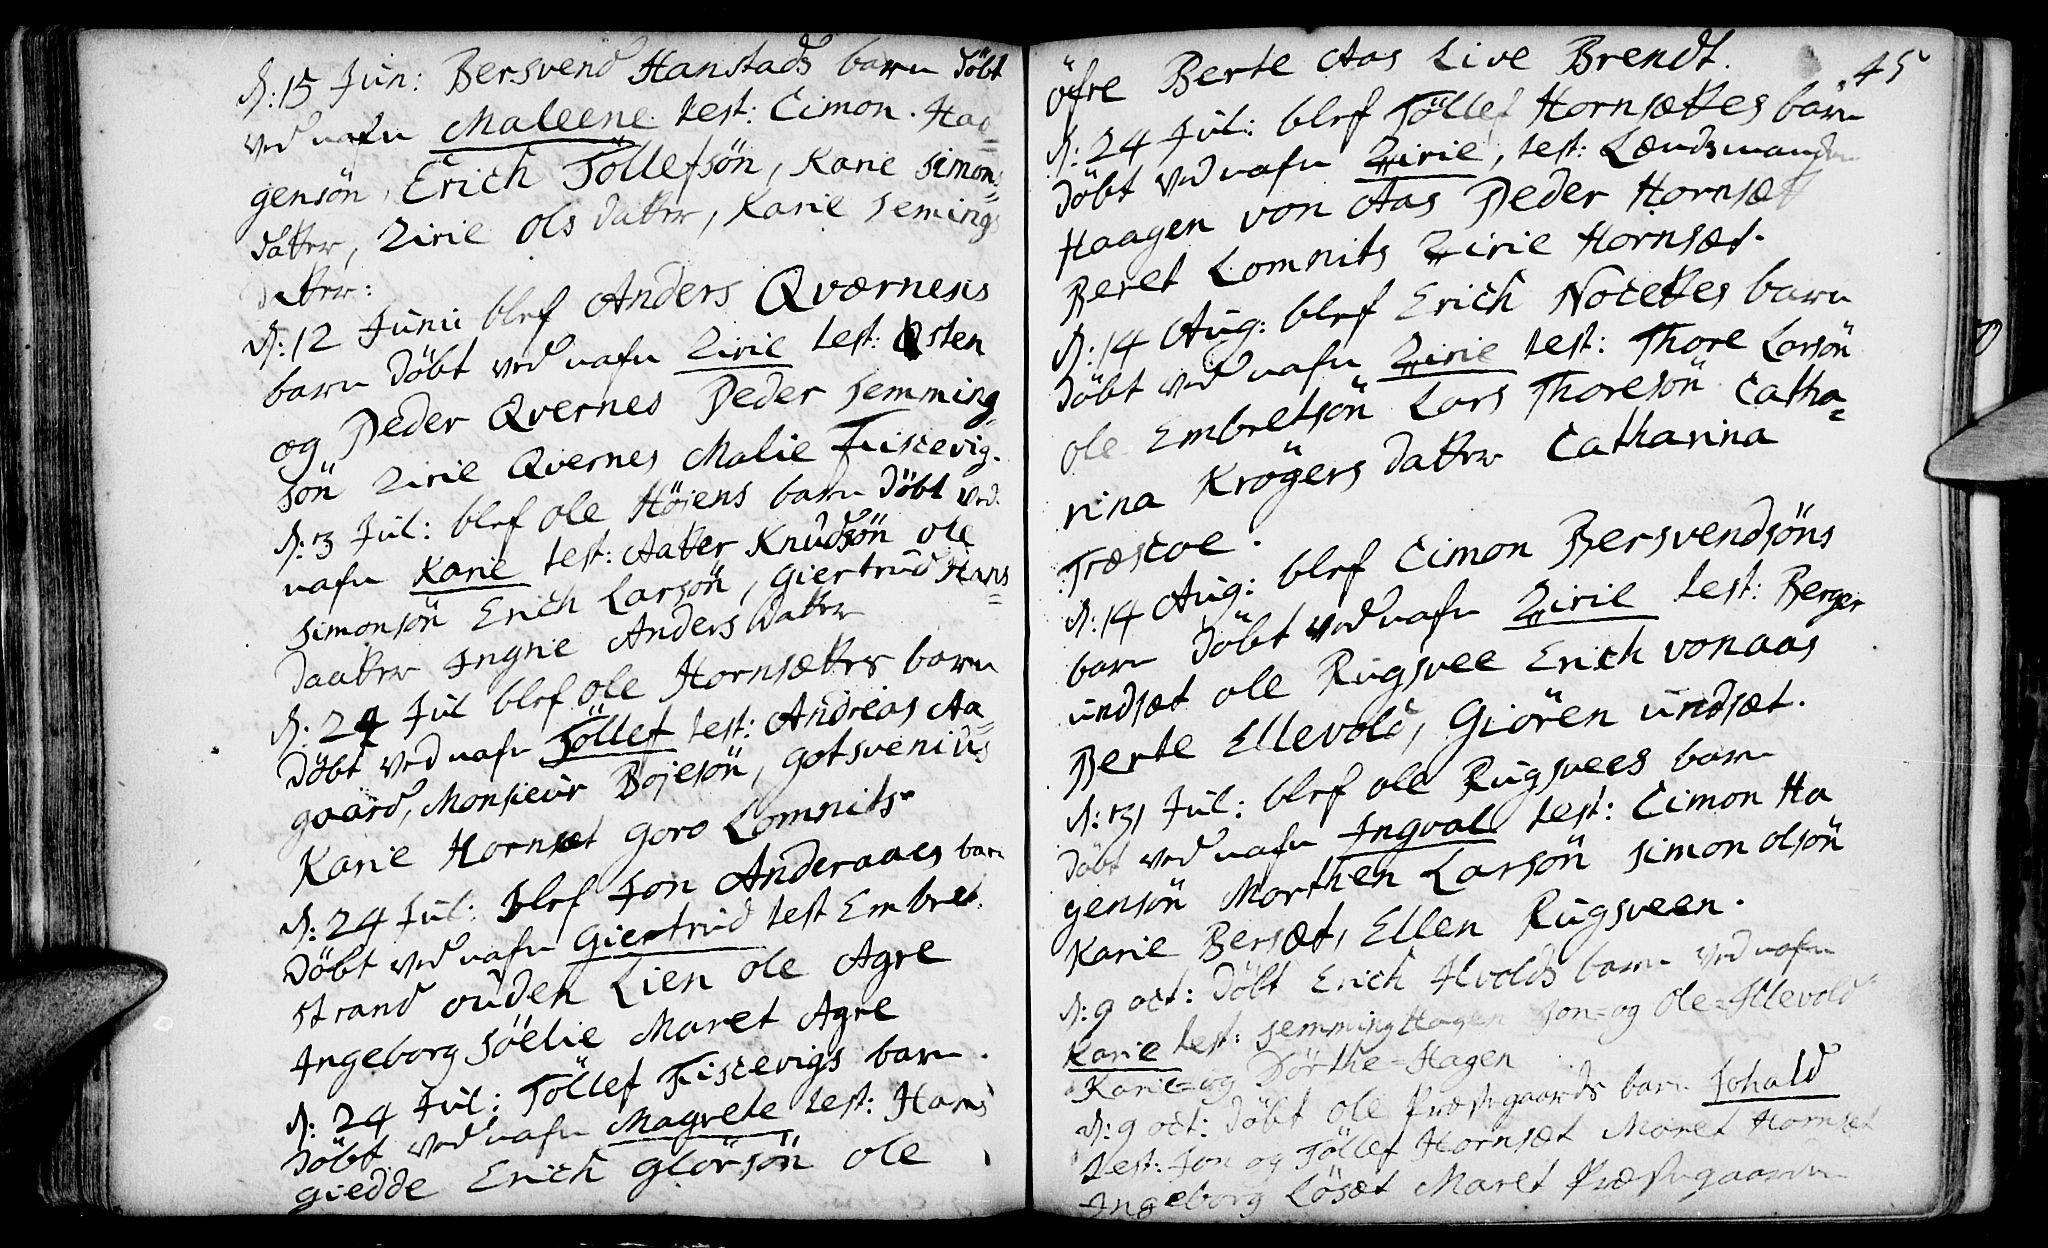 d: 15 Jun: Bersvend Hanstads barn döbt
ved nafn Maleene test: Cimon. Haa=
gensön, Erich Töllefsön, Karie Simons=
datter, Zirie Ols datter, Karie Semings
datter:
d: 12 Junii blef Anders Qværneses
barn döbt ved nafn Zirie test: Østen
og Peder Qvernes Peder Semming=
sön Zirie Qvernes Malie Fiscevig.
d: 3 Jul: blef ole Höiens barn döbt ved
nafn Karie test: Aatter Knudsön ole
Simonsön Erich Larsön, Giertrud Hans=
daatter Ingrie Anders datter
d: 24 Jul blef ole Hornsættes barn
döbt ved nafn Töllef test: Andreas Aa=
gaard, Monsieur Bojesön, Gotsvenius
Karie Hornsæt Goro Lomnits
d: 24 Jul: blef Jon Anderaaes barn
döbt ved nafn Giertrud test Embret.
strand ouden Lien ole Agre
Ingeborg Söelie Maret Agre
d: 24 Jul: Töllef Fiscevigs barn.
döbt ved nafn Magrete test: Hans
Giedde Erich Glörsön ole
45
öfre Berte Aas Live Brendt.
d: 24 Jul: blef Töllef Hornsættes barn
döbt ved nafn Zirie, test: Lændsmanden
Haagen von Aas Peder Hornsætt
Beret Lomnits Zirie Hornsæt.
d: 14 Aug: blef Erich Nocettes barn
döbt ved nafn Zirie test: Thore Larsön
ole Embretsön Lars Thoresön Catha=
rina Krögers datter Catharina
Træscoe.
d: 14 Aug: blef Cimon Bersvendsöns
barn döbt ved nafn Zirie test: Berger
undsæt ole Rugsvee Erich vonaas
Berte Ellevold, Giören undsæt.
d: 31 Jul: blef ole Rugsvees barn
döbt ved nafn Ingval test: Cimon Ha
gensön Morthen Larsön Simon olsön
Karie Bersæt, Ellen Rugsveen.
d: 9 oct: döbt Erich Ilvolds barn ved nafn
Karie test: Semming Hagen Jon= og Ole= Illevold
Karie= og Dörthe= Hagen
d: 9 oct: döbt ole Præstgaards barn Johald
test: Jon og Töllef Hornsæt Maret Hornset
Ingeborg Lösæt Maret Præstgaarden